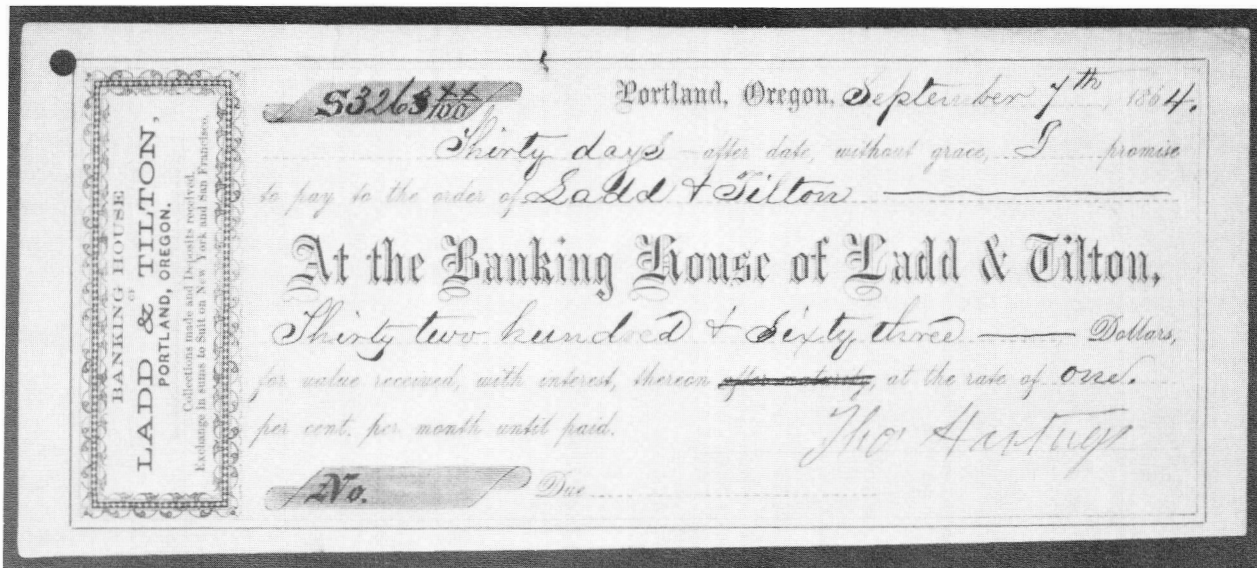 BANKING HOUSE
OF
LADD & TILTON,
PORTLAND, OREGON.
Collections made and Deposits received.
Exchange in sums to Suit on New York and San Francisco.
$3263 xx/100
Portland, Oregon, September 7th 1864.
Thirty days after date, without grace, I promise
to pay to the order of Ladd & Tilton
At the Banking House of Ladd & Tilton,
Thirty two hundred & Sixty three Dollars,
for value received, with interest, thereon after maturity, at the rate of one.
per cent. per month until paid.
Tho
No.
Due